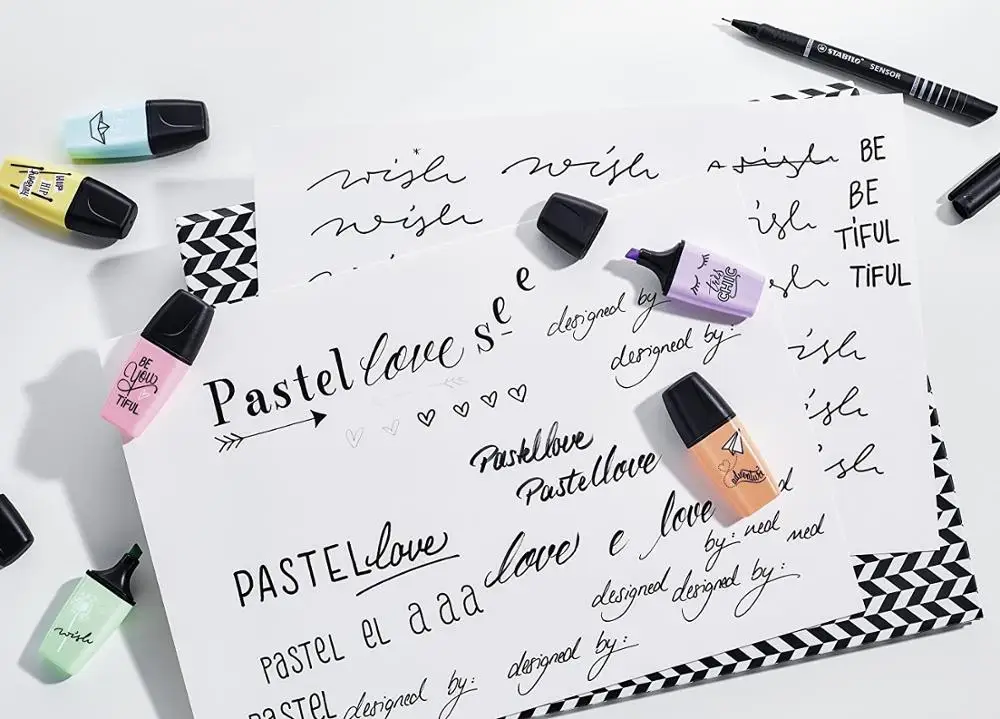 STABILO SENSOR
wish wish wish BE
wish ish BE
TiFUL
TiFUL
HIP
HIP
HURRAY
très
CHIC
designed by
designed by:
Pastel love see
BE
YOU
TIFUL
Pastellove
Pastellove
adventure
PASTEL love
love e love
by: ned ned
PASTEL EL a a a
designed designed by:
wish
designed by:
PASTEL designed by: